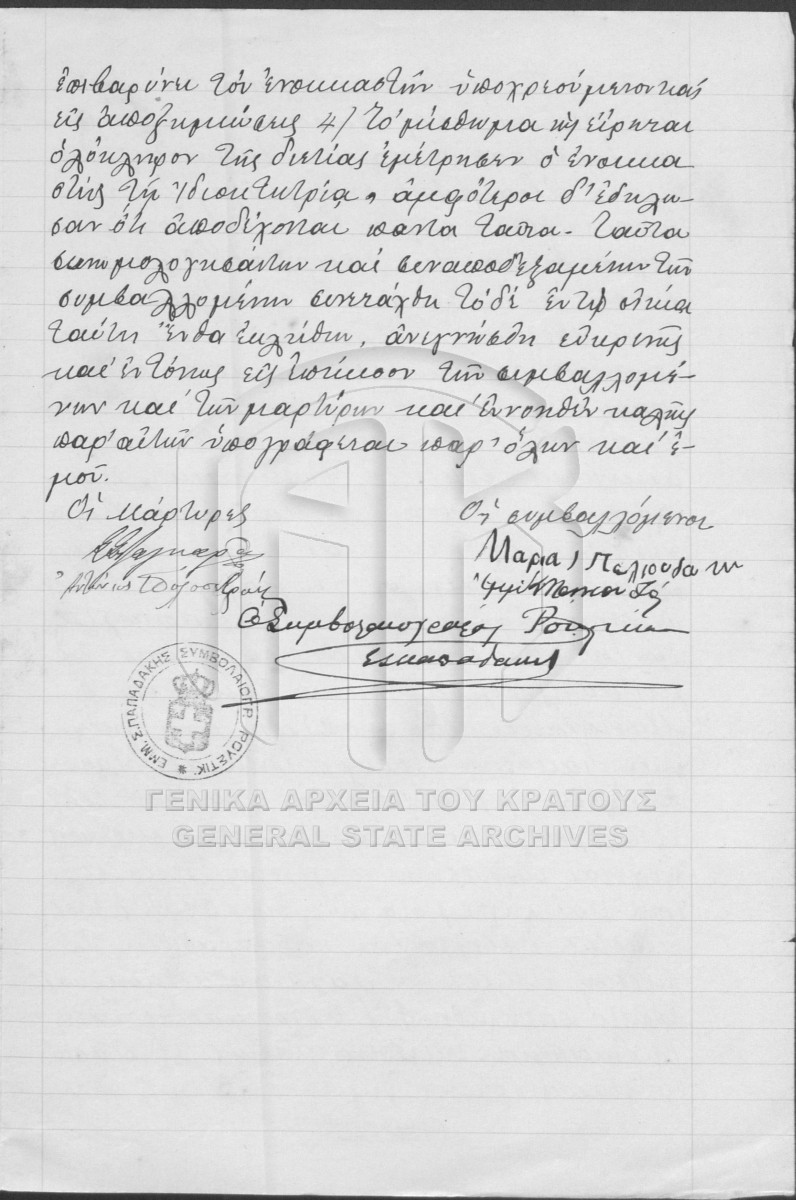 ἐπιβαρύνει τόν ἐνοικιαστήν ὑποχρεούμενον καί
εἰς ἀποζημιώσεις 4/ Τό μίσθωμα ὡς εἴρηται
ὁλόκληρον τῆς διετίας ἐμέτρησεν ὁ ἐνοικια
στής τῇ ἰδιοκτητρίᾳ, ἀμφότεροι δ' ἐδήλω-
σαν ὅτι ἀποδέχονται πάντα ταῦτα. Ταῦτα
συνομολογησάντων καί συναποδεξαμένων τῶν
συμβαλλομένων συνετάχθη τό δέ ἐν τῇ οἰκίᾳ
ταύτῃ ἔνθα ἐκλήθην, ἀνεγνώσθη εὐκρινῶς
καί ἐντόνως εἰς ἐπήκοον τῶν συμβαλλομέ-
νων καί τῶν μαρτύρων καί ἐννοηθέν καλῶς
παρ' αὐτῶν ὑπογράφεται παρ' ὅλων καί ἐ-
μοῦ.
Οἱ Μάρτυρες
Οἱ συμβαλλόμενοι
Μαρία
Ὁ Συμβολαιογράφος
ΕΣΠαπαδάκης
ΕΜΜ. Σ. ΠΑΠΑΔΑΚΗΣ ΣΥΜΒΟΛΑΙΟΓΡ. ΡΟΥΣΤΙΚ.
ΓΕΝΙΚΑ ΑΡΧΕΙΑ ΤΟΥ ΚΡΑΤΟΥΣ
GENERAL STATE ARCHIVES